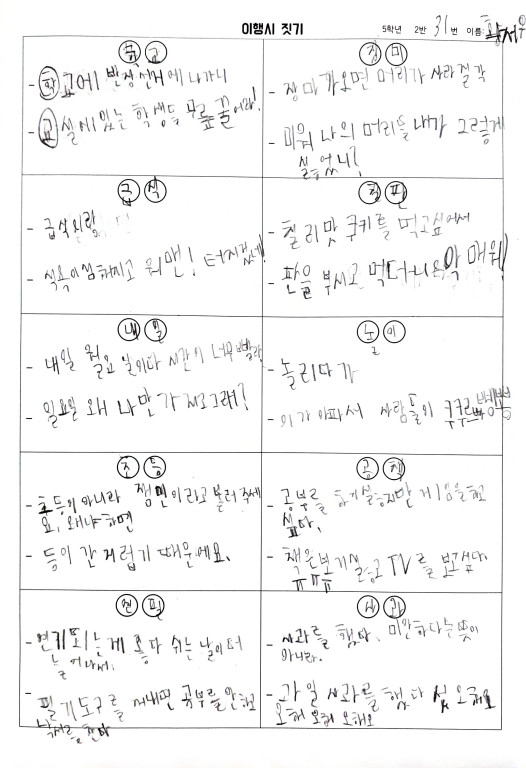 이행시 짓기
5학년 2반 31번 이름: 황서우
학교
- 학교에 반장선거에 나가니
- 교실에 있는 학생들 무릎 꿇어라!
장미
- 장마가 오면 머리가 사라질각
- 미워 나의 머리를 내가 그렇게
싫었니?
급식
- 급식이랑
- 식욕이 심해지고 워맨! 터지겠네!
칠판
- 칠리맛 쿠키를 먹고싶어서
- 판을 부시고 먹더니 으악 매워!
내일
- 내일 월요일이다 시간이 너무 빨라
- 일요일 왜 나만 가지고 그래?
놀이
- 놀리다가
- 이가 아파서 사람들이 쿠쿠루삥뽕
초등
- 초등이 아니라 잼민이라고 불러주세
요. 왜냐하면
- 등이 간지럽기 때문에요.
공책
- 공부를 하기 싫지만 게임을 하고
싶다.
- 책은 보기 싫고 TV를 보고싶다
ㅠㅠㅠ
연필
- 연기되는게 좋다 쉬는 날이 더
늘어나서.
- 필기도구를 꺼내면 공부를 안하고
낙서를 한다
사과
- 사과를 했다, 미안하다는 뜻이
아니라.
- 과일 사과를 했다 오해요
오해 오해 오해요